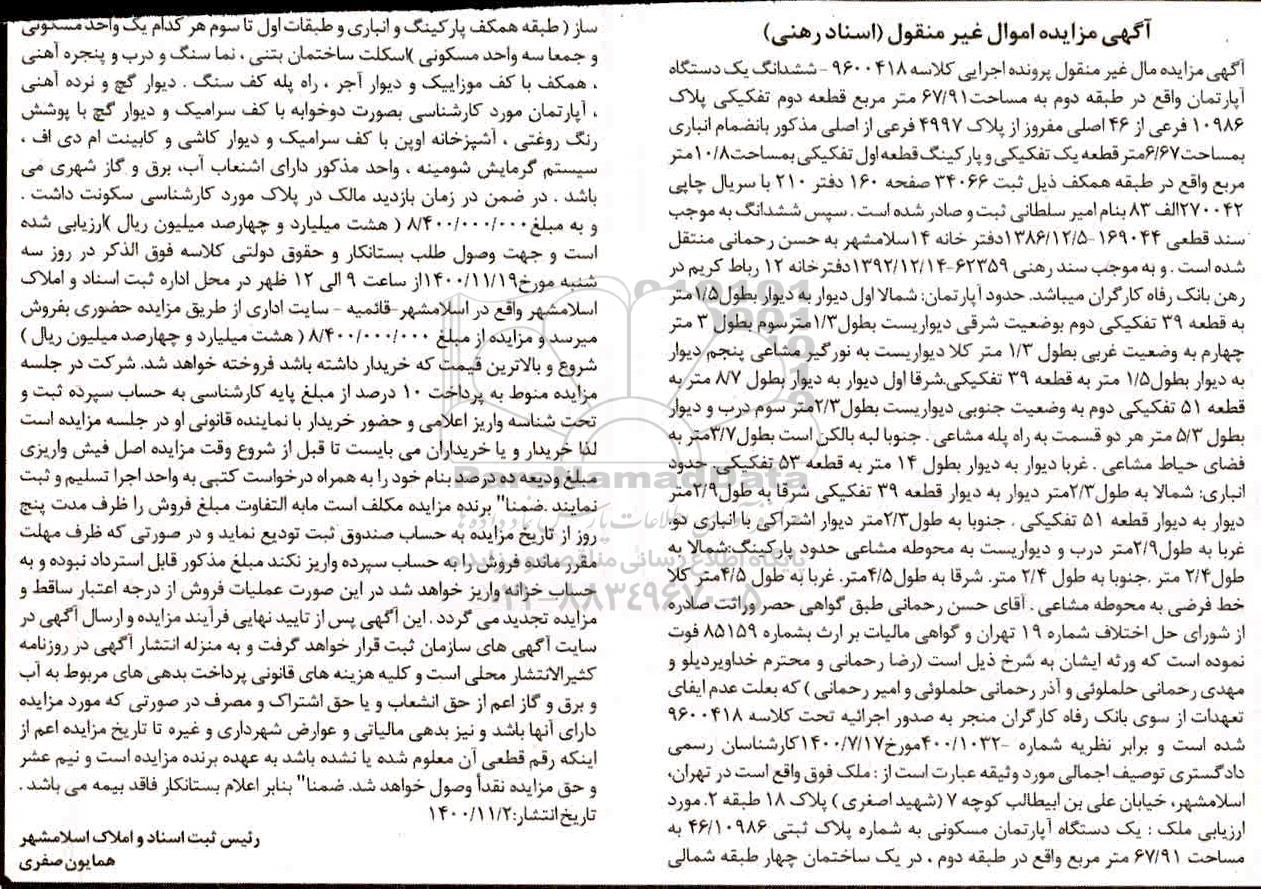 آگهی مزایده اموال غیر منقول (اسناد رهنی)
آگهی مزایده مال غیر منقول پرونده اجرایی کلاسه ۹۶۰۰۴۱۸ - ششدانگ یک دستگاه
آپارتمان واقع در طبقه دوم به مساحت۶۷/۹۱ متر مربع قطعه دوم تفکیکی پلاک
۱۰۹۸۶ فرعی از ۴۶ اصلی مفروز از پلاک ۴۹۹۷ فرعی از اصلی مذکور بانضمام انباری
بمساحت۶/۶۷متر قطعه یک تفکیکی و پارکینگ قطعه اول تفکیکی بمساحت۱۰/۸متر
مربع واقع در طبقه همکف ذیل ثبت ۳۴۰۶۶ صفحه ۱۶۰ دفتر ۲۱۰ با سریال چاپی
۲۷۰۰۴۲الف ۸۳ بنام امیر سلطانی ثبت و صادر شده است . سپس ششدانگ به موجب
سند قطعی ۱۶۹۰۴۴-۱۳۸۶/۱۲/۵دفتر خانه ۱۴اسلامشهر به حسن رحمانی منتقل
شده است . و به موجب سند رهنی ۶۲۳۵۹-۱۳۹۲/۱۲/۱۴دفترخانه ۱۲ رباط کریم در
رهن بانک رفاه کارگران میباشد. حدود آپارتمان: شمالا اول دیوار به دیوار بطول۱/۵متر
به قطعه ۳۹ تفکیکی دوم بوضعیت شرقی دیواریست بطول۱/۳مترسوم بطول ۳ متر
چهارم به وضعیت غربی بطول ۱/۳ متر کلا دیواریست به نورگیر مشاعی پنجم دیوار
به دیوار بطول۱/۵ متر به قطعه ۳۹ تفکیکی.شرقا اول دیوار به دیوار بطول ۸/۷ متر به
قطعه ۵۱ تفکیکی دوم به وضعیت جنوبی دیواریست بطول۲/۳متر سوم درب و دیوار
بطول ۵/۳ متر هر دو قسمت به راه پله مشاعی . جنوبا لبه بالکن است بطول۳/۷متر به
فضای حیاط مشاعی . غربا دیوار به دیوار بطول ۱۴ متر به قطعه ۵۳ تفکیکی. حدود
انباری: شمالا به طول۲/۳متر دیوار به دیوار قطعه ۳۹ تفکیکی شرقا به طول۲/۹متر
دیوار به دیوار قطعه ۵۱ تفکیکی . جنوبا به طول۲/۳متر دیوار اشتراکی با انباری دو.
غربا به طول۲/۹متر درب و دیواریست به محوطه مشاعی حدود پارکینگ:شمالا به
طول۲/۴ متر .جنوبا به طول ۲/۴ متر. شرقا به طول۴/۵متر. غربا به طول ۴/۵متر کلا
خط فرضی به محوطه مشاعی . آقای حسن رحمانی طبق گواهی حصر وراثت صادره
از شورای حل اختلاف شماره ۱۹ تهران و گواهی مالیات بر ارث بشماره ۸۵۱۵۹ فوت
نموده است که ورثه ایشان به شرح ذیل است (رضا رحمانی و محترم خداویردیلو و
مهدی رحمانی حلملوئی و آذر رحمانی حلملوئی و امیر رحمانی ) که بعلت عدم ایفای
تعهدات از سوی بانک رفاه کارگران منجر به صدور اجرائیه تحت کلاسه ۹۶۰۰۴۱۸
شده است و برابر نظریه شماره -۴۰۰/۱۰۳۲مورخ۱۴۰۰/۷/۱۷کارشناسان رسمی
دادگستری توصیف اجمالی مورد وثیقه عبارت است از : ملک فوق واقع است در تهران،
اسلامشهر، خیابان علی بن ابیطالب کوچه ۷ (شهید اصغری ) پلاک ۱۸ طبقه ۲. مورد
ارزیابی ملک : یک دستگاه آپارتمان مسکونی به شماره پلاک ثبتی ۴۶/۱۰۹۸۶ به
مساحت ۶۷/۹۱ متر مربع واقع در طبقه دوم ، در یک ساختمان چهار طبقه شمالی
ساز ( طبقه همکف پارکینگ و انباری و طبقات اول تا سوم هر کدام یک واحد مسکونی
و جمعا سه واحد مسکونی )اسکلت ساختمان بتنی ، نما سنگ و درب و پنجره آهنی
، همکف با کف موزاییک و دیوار آجر ، راه پله کف سنگ . دیوار گچ و نرده آهنی
، آپارتمان مورد کارشناسی بصورت دوخوابه با کف سرامیک و دیوار گچ با پوشش
رنگ روغنی ، آشپزخانه اوپن با کف سرامیک و دیوار کاشی و کابینت ام دی اف ،
سیستم گرمایش شومینه ، واحد مذکور دارای اشنعاب آب، برق و گاز شهری می
باشد . در ضمن در زمان بازدید مالک در پلاک مورد کارشناسی سکونت داشت .
و به مبلغ۸/۴۰۰/۰۰۰/۰۰۰ ( هشت میلیارد و چهارصد میلیون ریال )ارزیابی شده
است و جهت وصول طلب بستانکار و حقوق دولتی کلاسه فوق الذکر در روز سه
شنبه مورخ۱۴۰۰/۱۱/۱۹از ساعت ۹ الی ۱۲ ظهر در محل اداره ثبت اسناد و املاک
اسلامشهر واقع در اسلامشهر-قائمیه - سایت اداری از طریق مزایده حضوری بفروش
میرسد و مزایده از مبلغ ۸/۴۰۰/۰۰۰/۰۰۰ ( هشت میلیارد و چهارصد میلیون ریال )
شروع و بالاترین قیمت که خریدار داشته باشد فروخته خواهد شد. شرکت در جلسه
مزایده منوط به پرداخت ۱۰ درصد از مبلغ پایه کارشناسی به حساب سپرده ثبت و
تحت شناسه واریز اعلامی و حضور خریدار با نماینده قانونی او در جلسه مزایده است
لذا خریدار و یا خریداران می بایست تا قبل از شروع وقت مزایده اصل فیش واریزی
مبلغ ودیعه ده درصد بنام خود را به همراه درخواست کتبی به واحد اجرا تسلیم و ثبت
نمایند .ضمنا" برنده مزایده مکلف است مابه التفاوت مبلغ فروش را ظرف مدت پنج
روز از تاریخ مزایده به حساب صندوق ثبت تودیع نماید و در صورتی که ظرف مهلت
مقرر مانده فروش را به حساب سپرده واریز نکند مبلغ مذکور قابل استرداد نبوده و به
حساب خزانه واریز خواهد شد در این صورت عملیات فروش از درجه اعتبار ساقط و
مزایده تجدید می گردد . این آگهی پس از تایید نهایی فرآیند مزایده و ارسال آگهی در
سایت آگهی های سازمان ثبت قرار خواهد گرفت و به منزله انتشار آگهی در روزنامه
کثیرالانتشار محلی است و کلیه هزینه های قانونی پرداخت بدهی های مربوط به آب
و برق و گاز اعم از حق انشعاب و یا حق اشتراک و مصرف در صورتی که مورد مزایده
دارای آنها باشد و نیز بدهی مالیاتی و عوارض شهرداری و غیره تا تاریخ مزایده اعم از
اینکه رقم قطعی آن معلوم شده یا نشده باشد به عهده برنده مزایده است و نیم عشر
و حق مزایده نقدأ وصول خواهد شد. ضمنا" بنابر اعلام بستانکار فاقد بیمه می باشد .
تاریخ انتشار:۱۴۰۰/۱۱/۲
رئیس ثبت اسناد و املاک اسلامشهر
همایون صفری
ParsNamadData
پایگاه اطلاع رسانی مناقصه و مزایده
۰۲۱-۸۸۳۴۹۶۷۰-۵